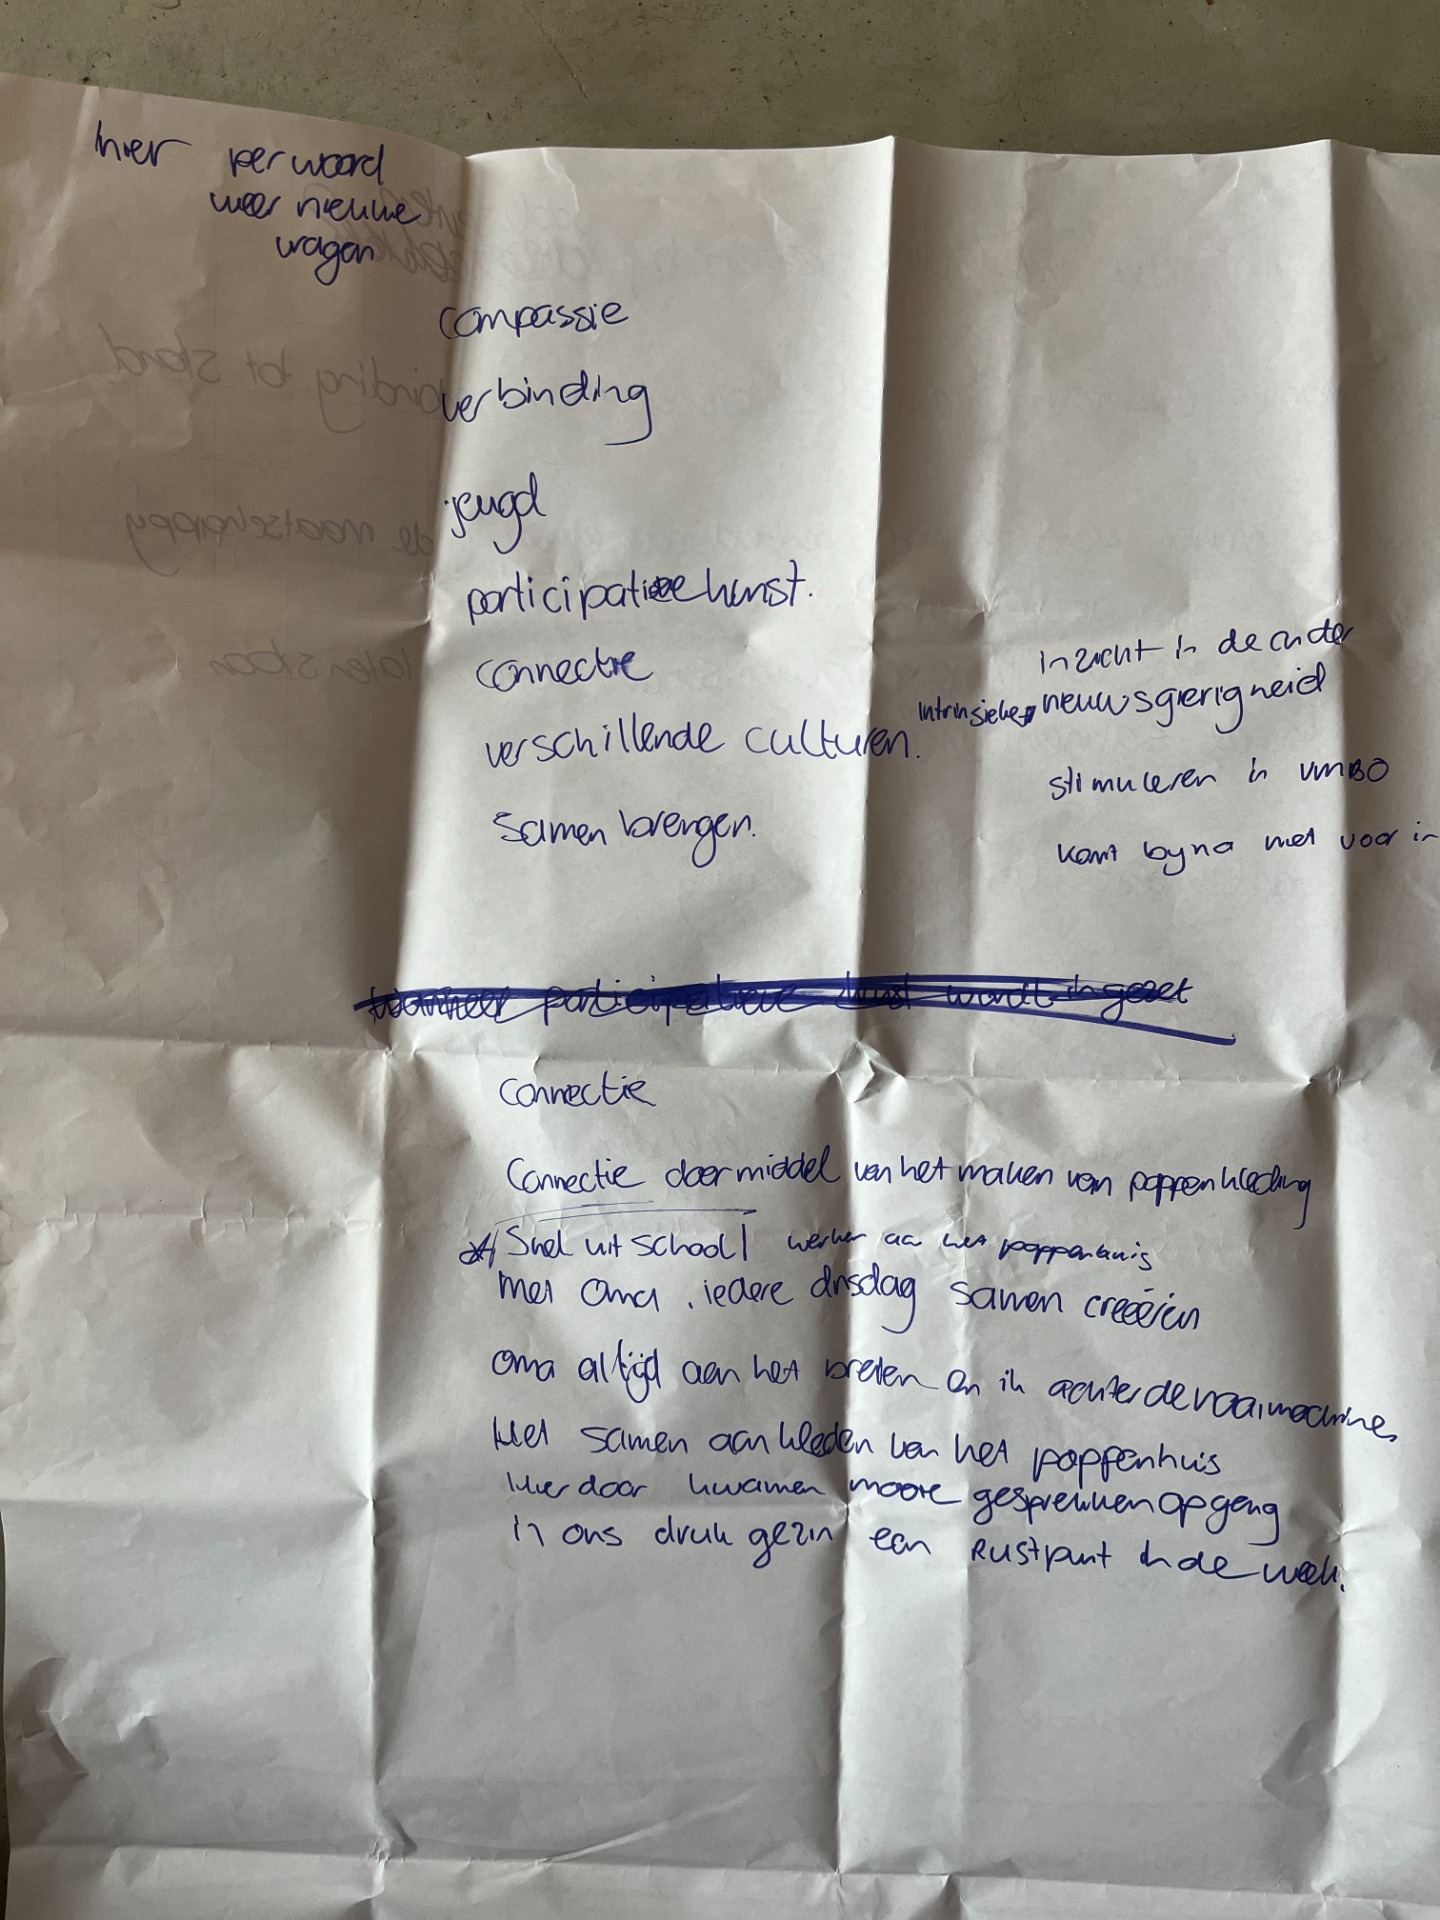 hier per woord
weer nieuwe
vragen
compassie
verbinding
jeugd
participatieve kunst.
connectie
verschillende culturen.
Samen brengen.
inzicht in de ander
Intrinsieke nieuwsgierigheid
stimuleren in VMBO
komt bijna niet voor in
wanneer participatieve kunst wordt ingezet
Connectie
Connectie door middel van het maken van poppenkleding
Snel uit school werken aan het poppenhuis
met Oma, iedere dinsdag samen creëeren
Oma altijd aan het breien en ik achter de naaimachine.
Het samen aankleden van het poppenhuis
Hierdoor kwamen mooie gesprekken op gang
in ons druk gezin een Rustpunt in de week.